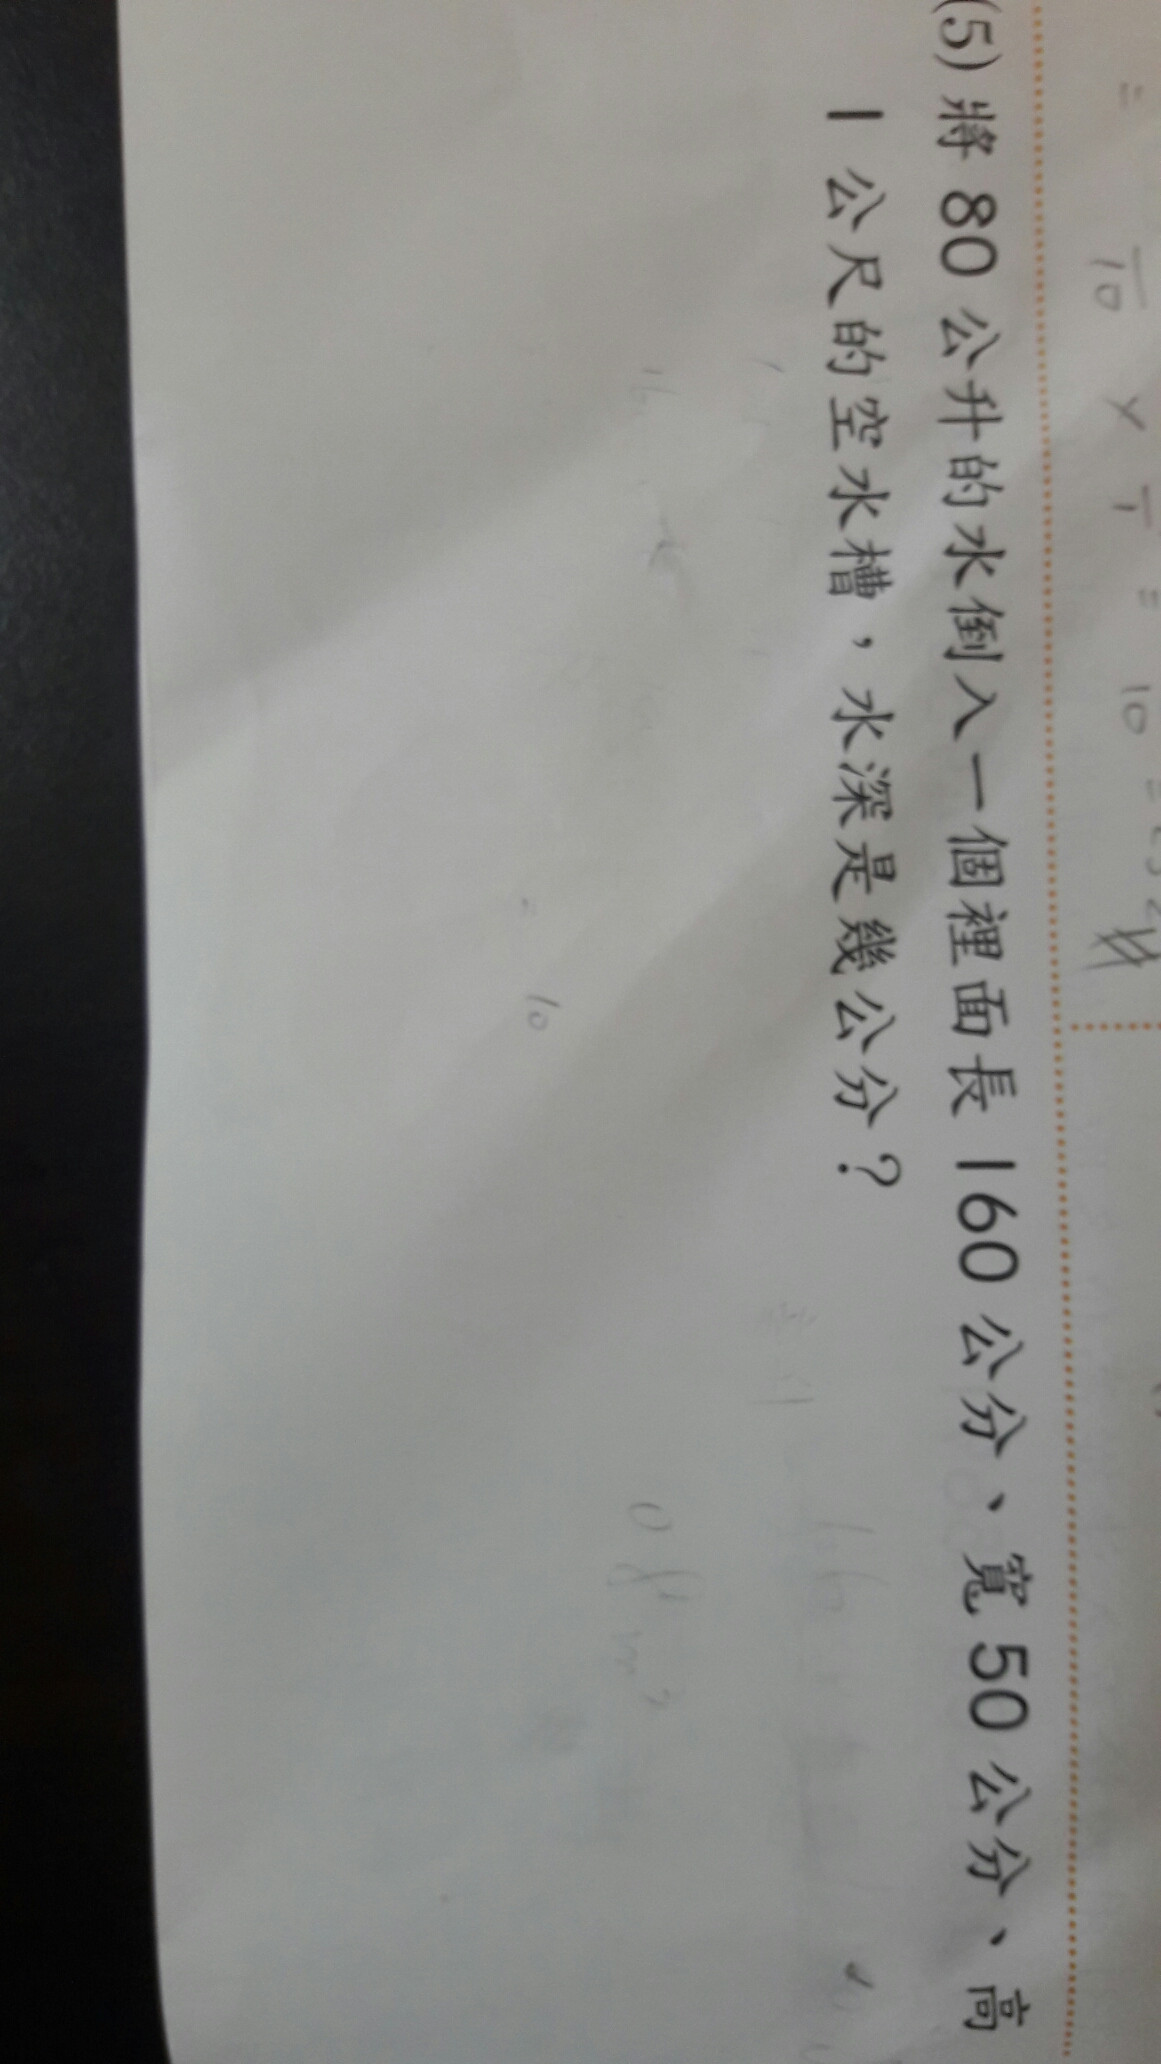 = 10 × 1 = 10 =
(5) 將 80 公升的水倒入一個裡面長 160 公分、寬 50 公分、高
1 公尺的空水槽，水深是幾公分？
10